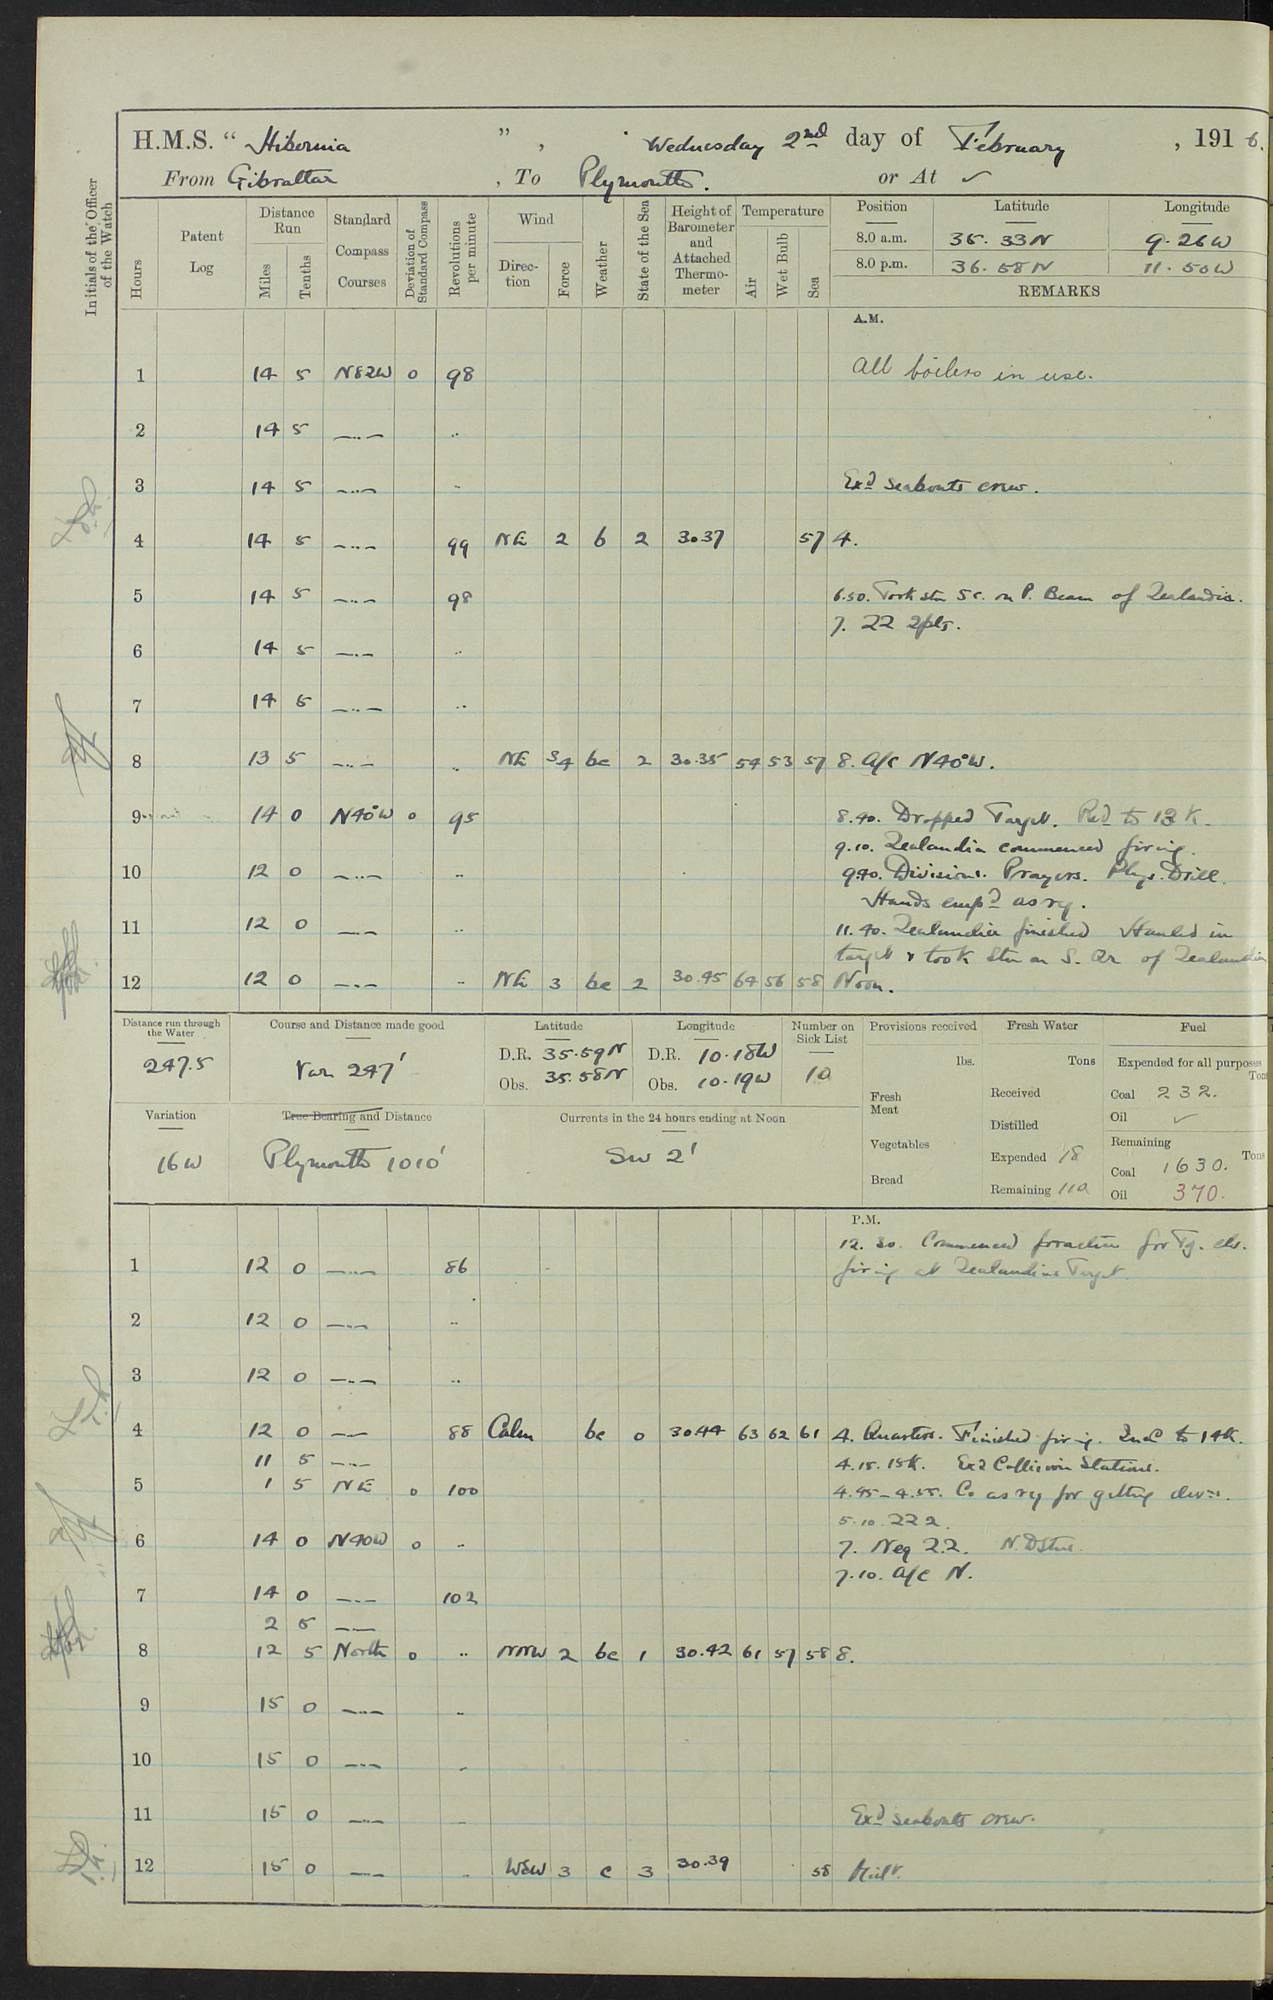 H.M.S. “ Hibernia ” , Wednesday 2nd day of February , 1916.
From Gibraltar , To Plymouth. or At ✓
Initials of the Officer of the Watch
Hours
Patent Log
Distance Run
Miles
Tenths
Standard Compass Courses
Deviation of Standard Compass
Revolutions per minute
Wind
Direction
Force
Weather
State of the Sea
Height of Barometer and Attached Thermometer
Temperature
Air
Wet Bulb
Sea
Position Latitude Longitude
8.0 a.m. 35. 33N 9. 26W
8.0 p.m. 36. 58N 11. 50W
REMARKS
A.M.
1 14 5 N82W 0 98 All boilers in use.
2 14 5 —..— ..
3 14 5 —..— .. Exd seaboats crew.
4 14 5 —..— 99 NE 2 b 2 30.37 57 4.
5 14 5 —..— 98 6.50. Took stn 5c. on P. Beam of Zealandia.
7. 22 2pls.
6 14 5 —..— ..
7 14 5 —..— ..
8 13 5 —..— .. NE 34 bc 2 30.35 54 53 57 8. A/c N40°W.
9 14 0 N40°W 0 95 8.40. Dropped Target. Red to 12 K.
9.10. Zealandia commenced firing.
10 12 0 —..— .. 9.40. Divisions. Prayers. Phys. Drill.
Hands empd as rq.
11 12 0 —..— .. 11.40. Zealandia finished Hauled in
target & took stn on S. Qr of Zealandia
12 12 0 —..— .. NE 3 bc 2 30.45 64 56 58 Noon.
Distance run through the Water
247.5
Course and Distance made good
Var. 247'
Latitude
D.R. 35.59N
Obs. 35.58N
Longitude
D.R. 10.18W
Obs. 10.19W
Number on Sick List
10
Provisions received
lbs.
Fresh Meat
Vegetables
Bread
Fresh Water
Tons
Received
Distilled
Expended 18
Remaining 110
Fuel
Expended for all purposes
Tons
Coal 232.
Oil ✓
Remaining
Tons
Coal 1630.
Oil 370.
Variation
16W
True Bearing and Distance
Plymouth 1010'
Currents in the 24 hours ending at Noon
SW 2'
P.M.
12. 30. Commenced for Tg.
1 12 0 —..— 86 firing at Zealandias Target.
2 12 0 —..— ..
3 12 0 —..— ..
4 12 0 —..— 88 Calm bc 0 30.44 63 62 61 4. Quarters. Finished firing. Incd to 14K.
11 5 —..— 4.15. 15K. Exd Collision Stations.
5 1 5 NE 0 100 4.45–4.55. Co as rq for getting devns.
5.10. 222.
6 14 0 N40W 0 .. 7. Neg 22. N.D Stns.
7.10. A/c N.
7 14 0 —..— 102
2 5 —..—
8 12 5 North 0 .. NNW 2 bc 1 30.42 61 57 58 8.
9 15 0 —..— ..
10 15 0 —..— ..
11 15 0 —..— .. Exd seaboats crew.
12 15 0 —..— .. WSW 3 c 3 30.39 58 Midt.